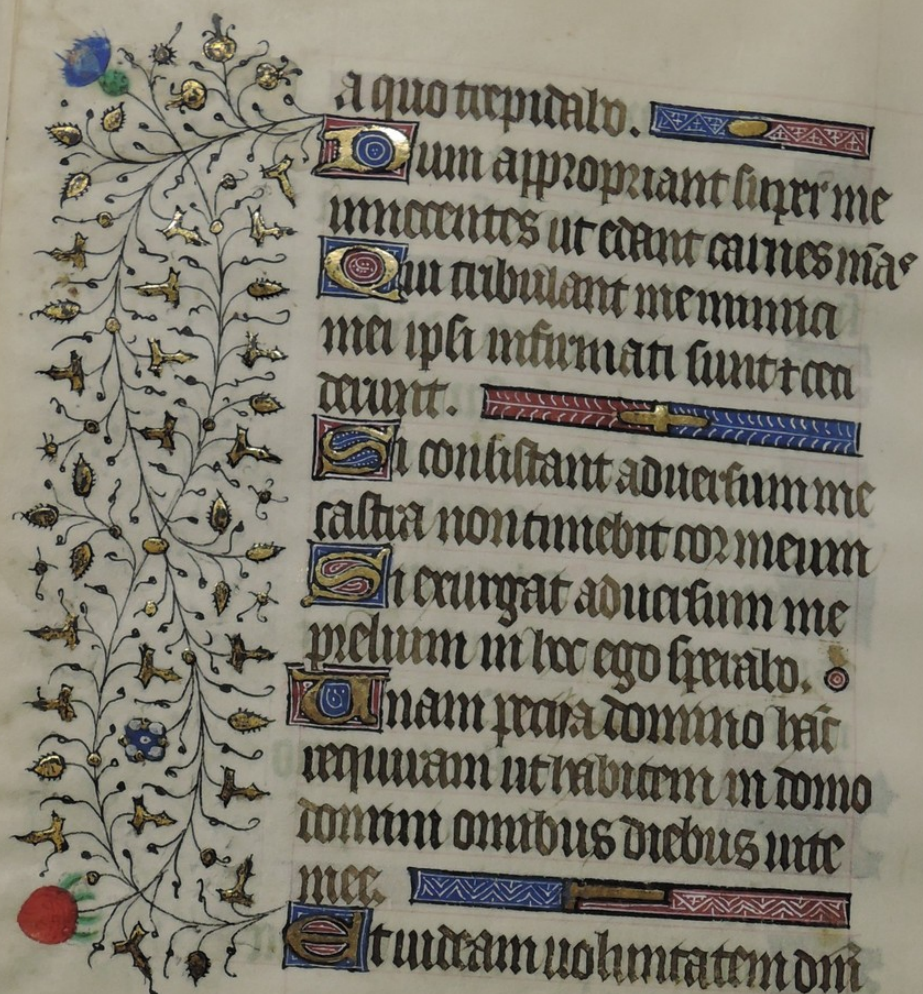 a quo trepidabo.
Dum appropriant super me
innocentes ut edant carnes mēas
Qui tribulant me inimici
mei ipsi infirmati sunt ⁊ ceci
derunt.
Si consistant aduersum me
castra non timebit cor meum
Si exurgat aduersum me
prelium in hoc ego sperabo.
Unam pecii a domino hāc
requiram ut habitem in domo
domini omnibus diebus uite
mee.
Et uideam uoluntatem dn̄i